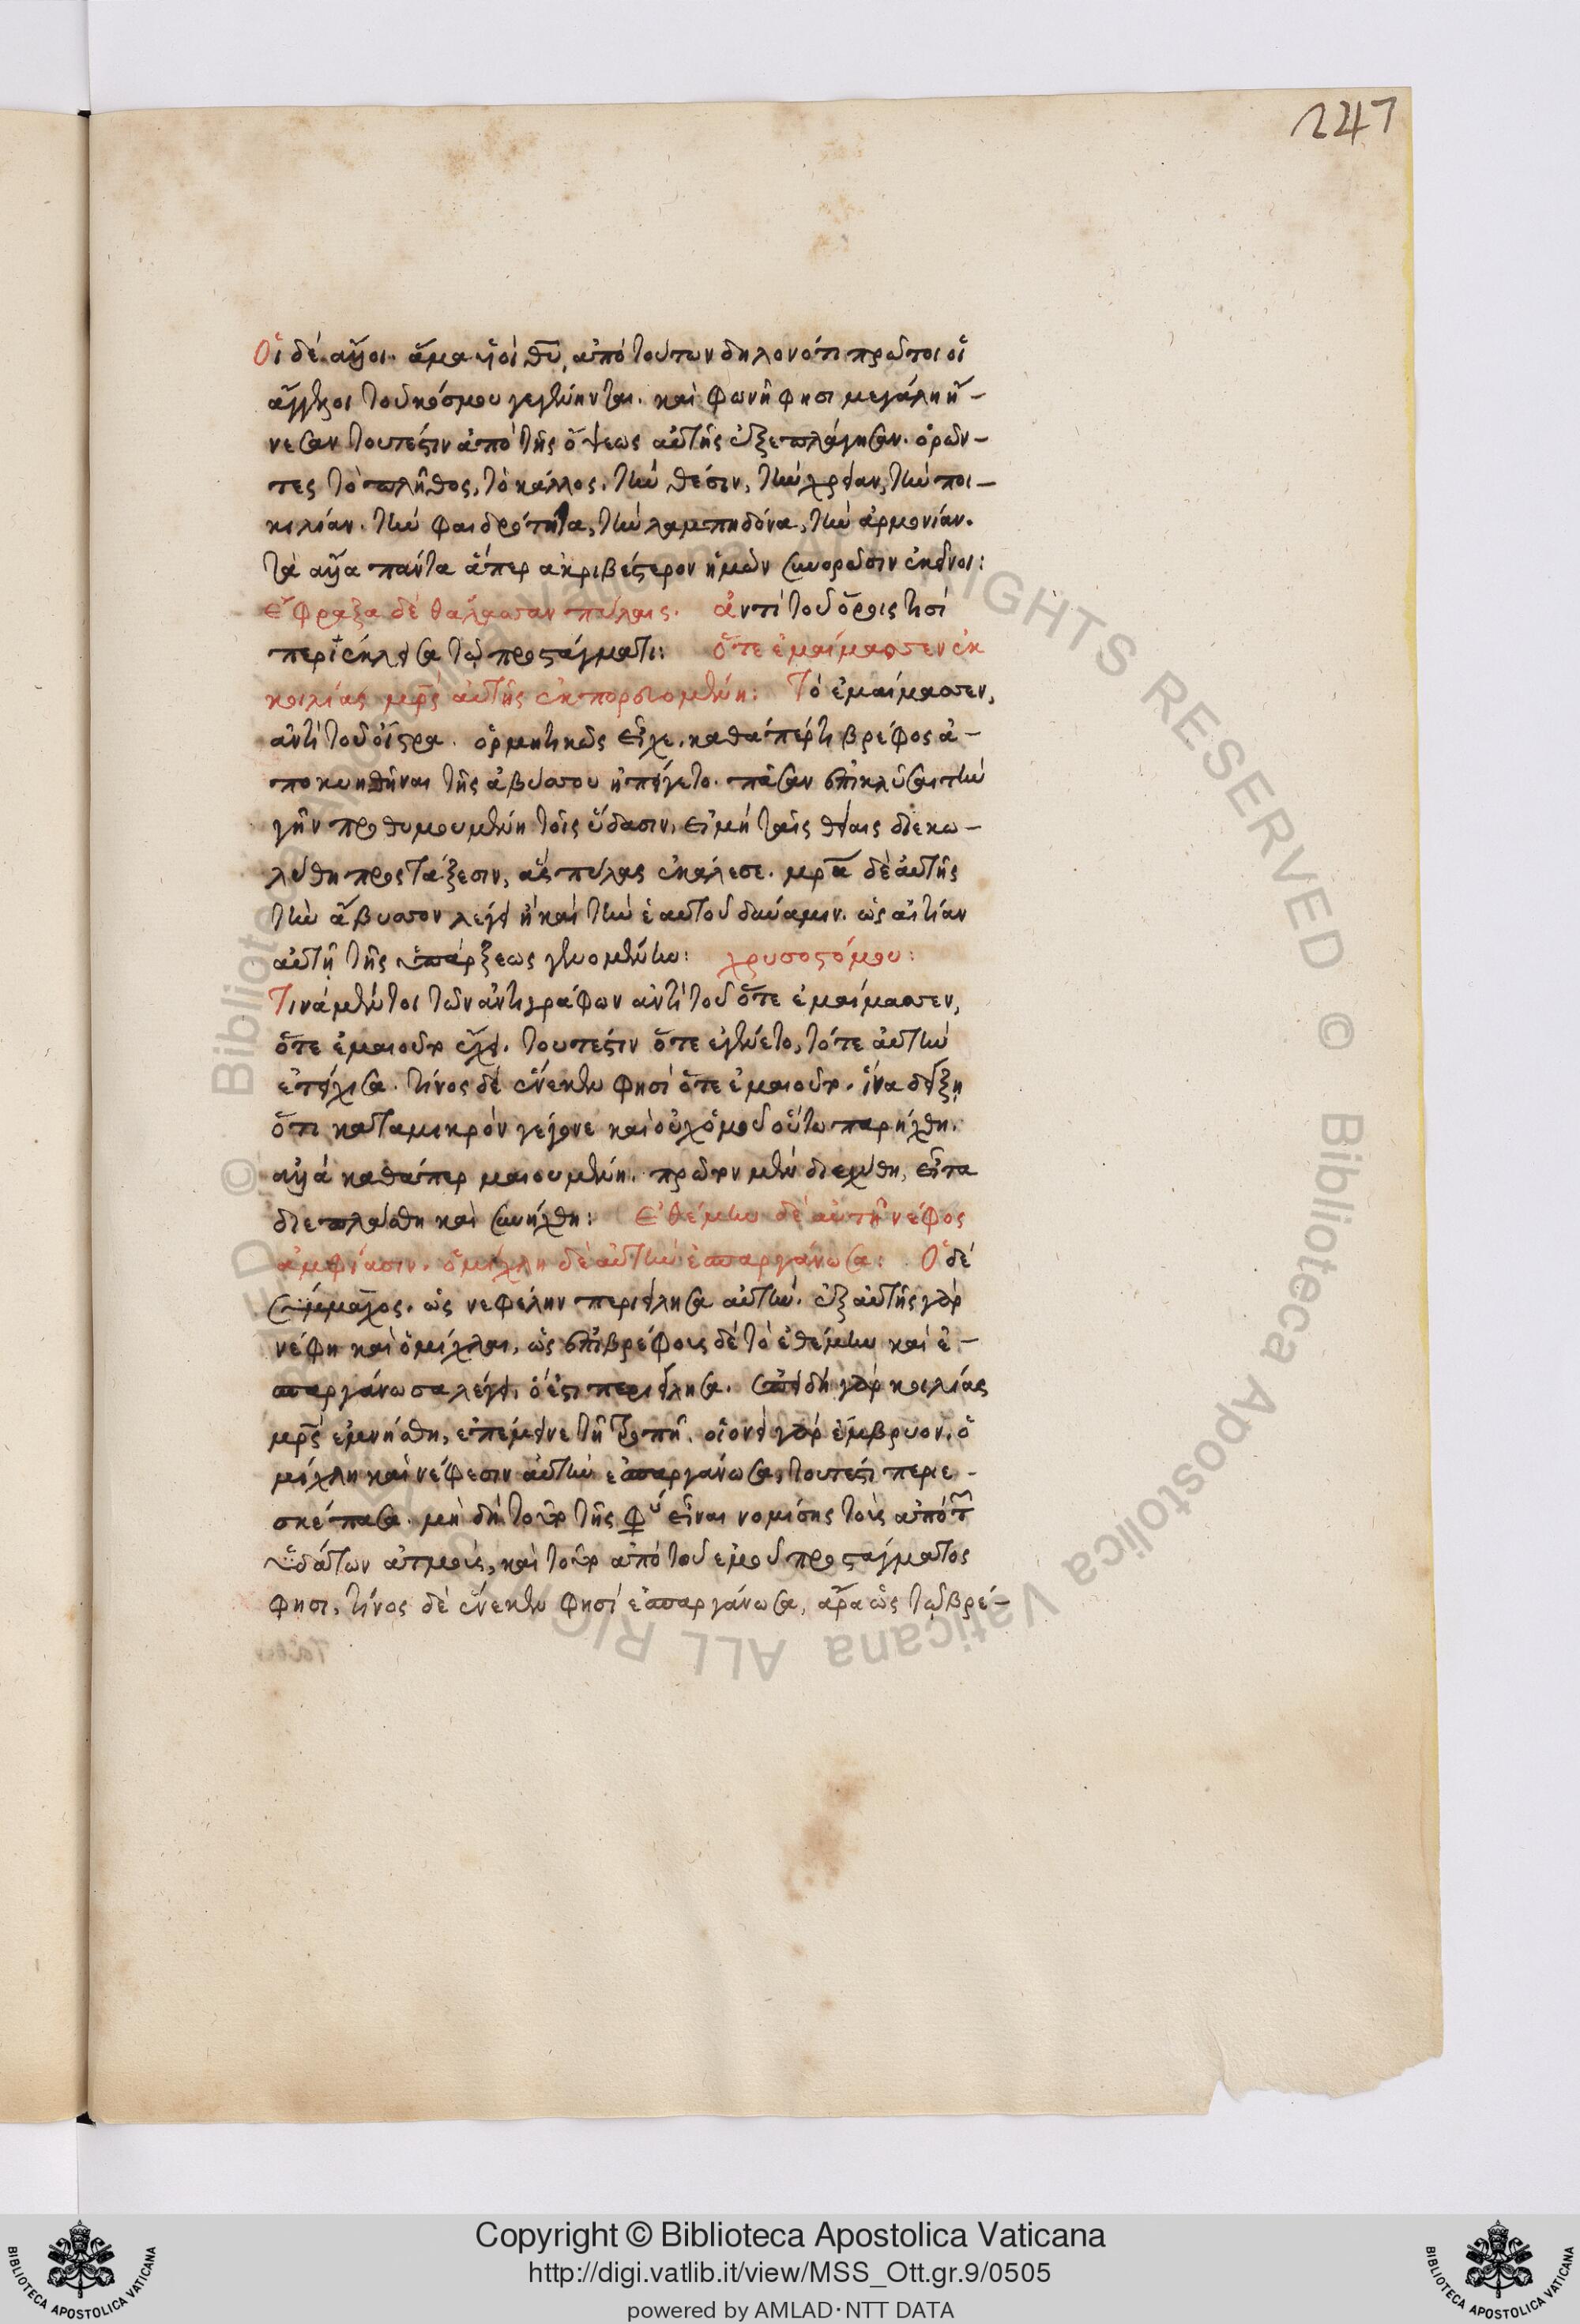 247
Οἱ δὲ ἄλλοι. ἅμα υἱοὶ θυ, ἀπὸ τούτων δηλονότι πρῶτοι οἱ
ἄγγελοι τοῦ κόσμου γεγένηνται. καὶ φωνῇ φησι μεγάλῃ ἤ-
νεσαν τουτέστιν ἀπὸ τῆς ὄψεως αὐτῆς ἐξεπλάγησαν. ὁρῶν-
τες τὸ πλῆθος, τὸ κάλλος. τὴν θέσιν, τὴν χρείαν, τὴν ποι-
κιλίαν. τὴν φαιδρότητα, τὴν λαμπηδόνα, τὴν ἁρμονίαν.
τὰ ἄλλα πάντα ἅπερ ἀκριβέστερον ἡμῶν συνορῶσιν ἐκεῖνοι:
Ἔφραξα δὲ θάλασσαν πύλαις. ἀντὶ τοῦ ὅροις τισί
περιέκλεισα τῷ προστάγματι: ὅτε ἐμαίμασσεν ἐκ
κοιλίας μρς αὐτῆς ἐκπορευομένη: Τὸ ἐμαίμασσεν,
ἀντὶ τοῦ οἴστρα. ὁρμητικῶς εἶχε. καθάπερ τι βρέφος ἀ-
ποκυηθῆναι τῆς ἀβύσσου ἠπείγετο. πᾶσαν ἐπικλύσαι τὴν
γῆν προθυμουμένη τοῖς ὕδασιν, εἰ μὴ ταῖς θείαις διεκω-
λύθη προστάξεσιν, ἃς πύλας ἐκάλεσε. μρα δὲ αὐτῆς
τὴν ἄβυσσον λέγει ἢ καὶ τὴν ἑαυτοῦ δύναμιν. ὡς αἰτίαν
αὐτῇ τῆς ὑπάρξεως γενομένην: χρυσοστόμου:
Τινὰ μέντοι τῶν ἀντιγράφων ἀντὶ τοῦ ὅτε ἐμαίμασσεν,
ὅτε ἐμαιοῦτο ἔχει. τουτέστιν ὅτε ἐγένετο, τότε αὐτὴν
ἐτείχισα. τίνος δὲ ἕνεκεν φησὶ ὅτε ἐμαιοῦτο. ἵνα δείξῃ
ὅτι κατὰ μικρὸν γέγονε καὶ οὐχ ὁμοῦ οὕτω παρήχθη.
ἀλλὰ καθάπερ μαιουμένη. πρῶτον μὲν διεχύθη, εἶτα
διεπλάσθη καὶ συνήχθη: Ἐθέμην δὲ αὐτῇ νέφος
ἀμφίασιν. ὁμίχλῃ δὲ αὐτὴν ἐσπαργάνωσα: Ὁ δὲ
Σύμμαχος. ὡς νεφέλην περιείλησα αὐτήν. ἐξ αὐτῆς γὰρ
νέφη καὶ ὁμίχλαι, ὡς ἐπὶ βρέφους δὲ τὸ ἐθέμην καὶ ἐ-
σπαργάνωσα λέγει. ὅ ἐστι περιείλησα. ἐπειδὴ γὰρ κοιλίας
μρς ἐμνήσθη, ἐπέμεινε τῇ τροπῇ. οἱονεὶ γὰρ ἔμβρυον, ὁ
μίχλῃ καὶ νέφεσιν αὐτὴν ἐσπαργάνωσα, τουτέστι περιε-
σκέπασα. μὴ δὴ τοῦτο τῆς φυ εἶναι νομίσῃς τοὺς ἀπὸ τ
ὑδάτων ἀτμούς, καὶ τοῦτο ἀπὸ τοῦ ἐμοῦ προστάγματος
φησι, τίνος δὲ ἕνεκεν φησὶ ἐσπαργάνωσα, ἆρα ὡς τῷ βρέ-
Copyright © Biblioteca Apostolica Vaticana
http://digi.vatlib.it/view/MSS_Ott.gr.9/0505
powered by AMLAD·NTT DATA